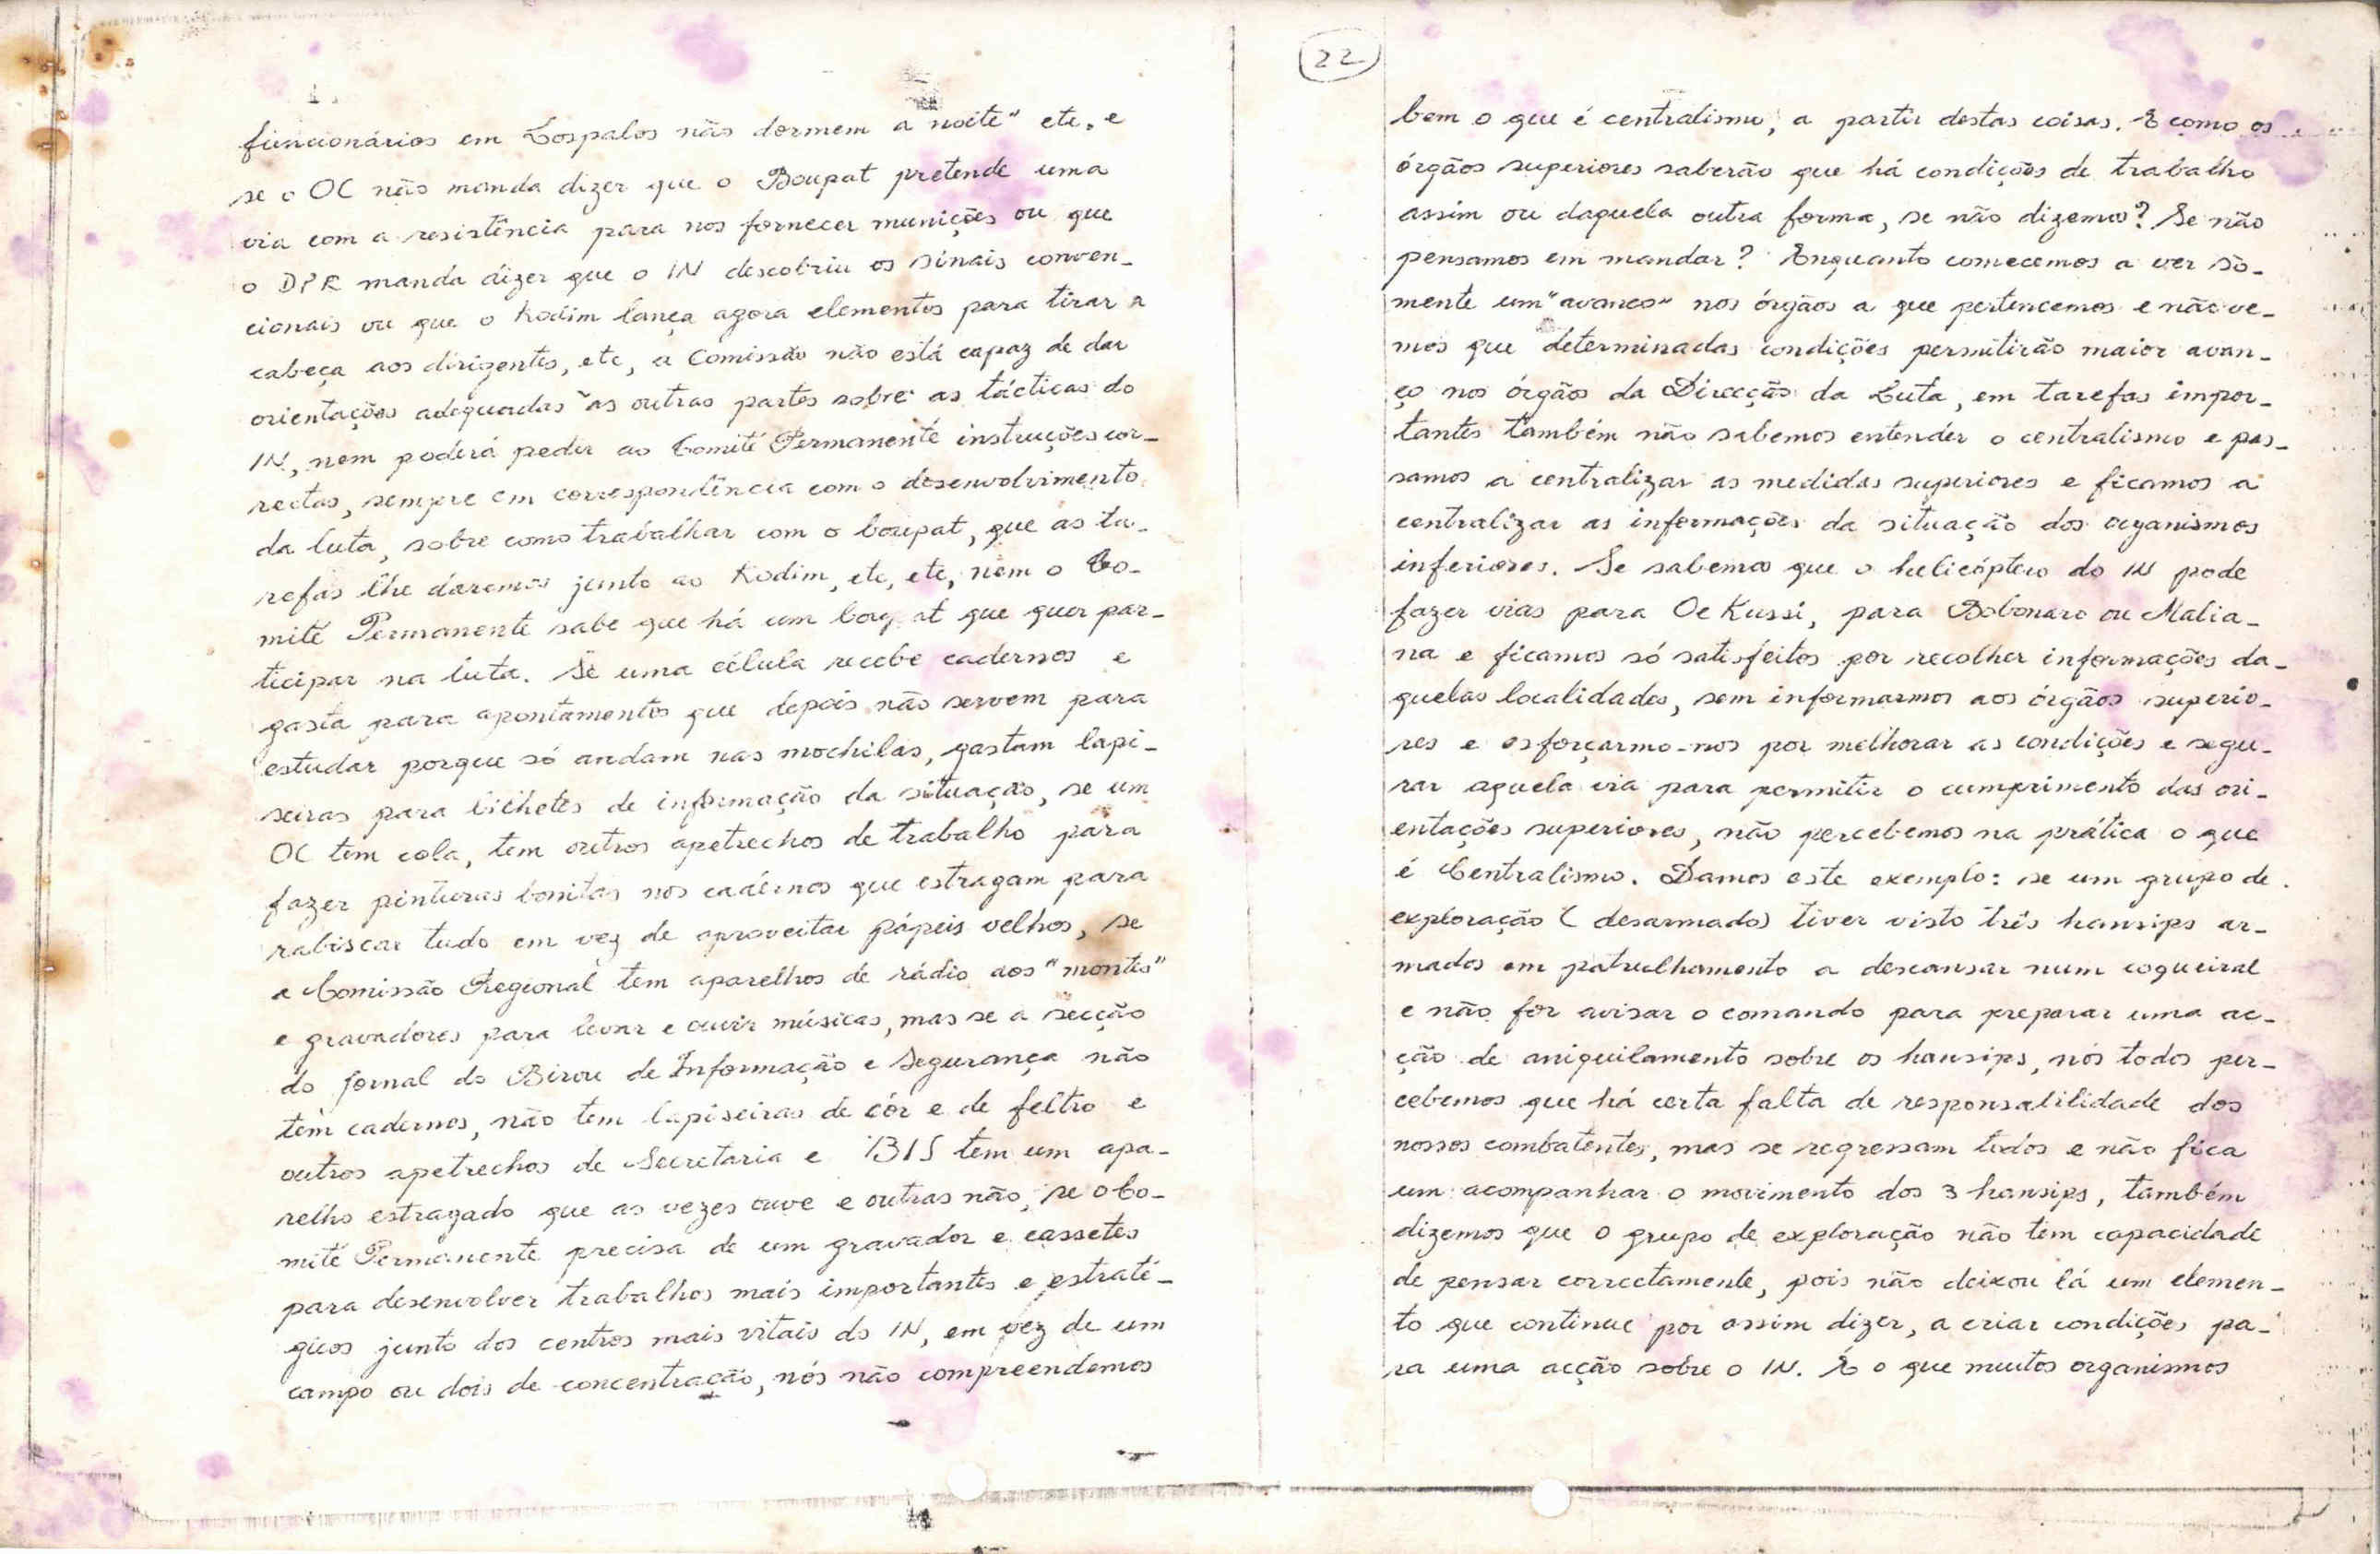 funcionários em Lospalos não dormem a noite" etc, e
se o OC não manda dizer que o Boupat pretende uma
via com a resistência para nos fornecer munições ou que
o DPR manda dizer que o IN descobriu os sinais conven-
cionais ou que o Kodim lança agora elementos para tirar a
cabeça aos dirigentes, etc, a Comissão não está capaz de dar
orientações adequadas às outras partes sobre as tácticas do
IN, nem poderá pedir ao Comité Permanente instruções cor-
rectas, sempre em correspondência com o desenvolvimento
da luta, sobre como trabalhar com o boupat, que as ta-
refas lhe daremos junto ao Kodim, etc, etc, nem o Co-
mité Permanente sabe que há um boupat que quer par-
ticipar na luta. Se uma célula recebe cadernos e
gasta para apontamentos que depois não servem para
estudar porque só andam nas mochilas, gastam lapi-
seiras para bilhetes de informação da situação, se um
OC tem cola, tem outros apetrechos de trabalho para
fazer pinturas bonitas nos cadernos que estragam para
rabiscar tudo em vez de aproveitar pápeis velhos, se
a Comissão Regional tem aparelhos de rádio aos "montes"
e gravadores para levar e ouvir músicas, mas se a secção
do Jornal do Birou de Informação e Segurança não
tem cadernos, não tem lapiseiras de côr e de feltro e
outros apetrechos de Secretaria e BIS tem um apa-
relho estragado que as vezes ouve e outras não, se o Co-
mité Permanente precisa de um gravador e cassetes
para desenvolver trabalhos mais importantes e estraté-
gicos junto dos centros mais vitais do IN, em vez de um
campo ou dois de concentração, nós não compreendemos
22
bem o que é centralismo, a partir destas coisas. E como os
órgãos superiores saberão que há condições de trabalho
assim ou daquela outra forma, se não dizemos? Se não
pensamos em mandar? Enquanto comecemos a ver sò-
mente um "avanco" nos órgãos a que pertencemos e não ve-
mos que determinadas condições permitirão maior avan-
ço nos órgãos da Direcção da Luta, em tarefas impor-
tantes também não sabemos entender o centralismo e pas-
samos a centralizar as medidas superiores e ficamos a
centralizar as informações da situação dos organismos
inferiores. Se sabemos que o helicóptero do IN pode
fazer vias para Oe Kussi, para Bobonaro ou Malia-
na e ficamos só satisfeitos por recolher informações da-
quelas localidades, sem informarmos aos órgãos superio-
res e esforçarmo-nos por melhorar as condições e segu-
rar aquela via para permitir o cumprimento das ori-
entações superiores, não percebemos na prática o que
é Centralismo. Damos este exemplo: se um grupo de
exploração (desarmado) tiver visto três hansips ar-
mados em patrulhamento a descansar num coqueiral
e não for avisar o comando para preparar uma ac-
ção de aniquilamento sobre os hansips, nós todos per-
cebemos que há certa falta de responsabilidade dos
nossos combatentes, mas se regressam todos e não fica
um acompanhar o movimento dos 3 hansips, também
dizemos que o grupo de exploração não tem capacidade
de pensar correctamente, pois não deixou lá um elemen-
to que continue por assim dizer, a criar condições pa-
ra uma acção sobre o IN. É o que muitos organismos